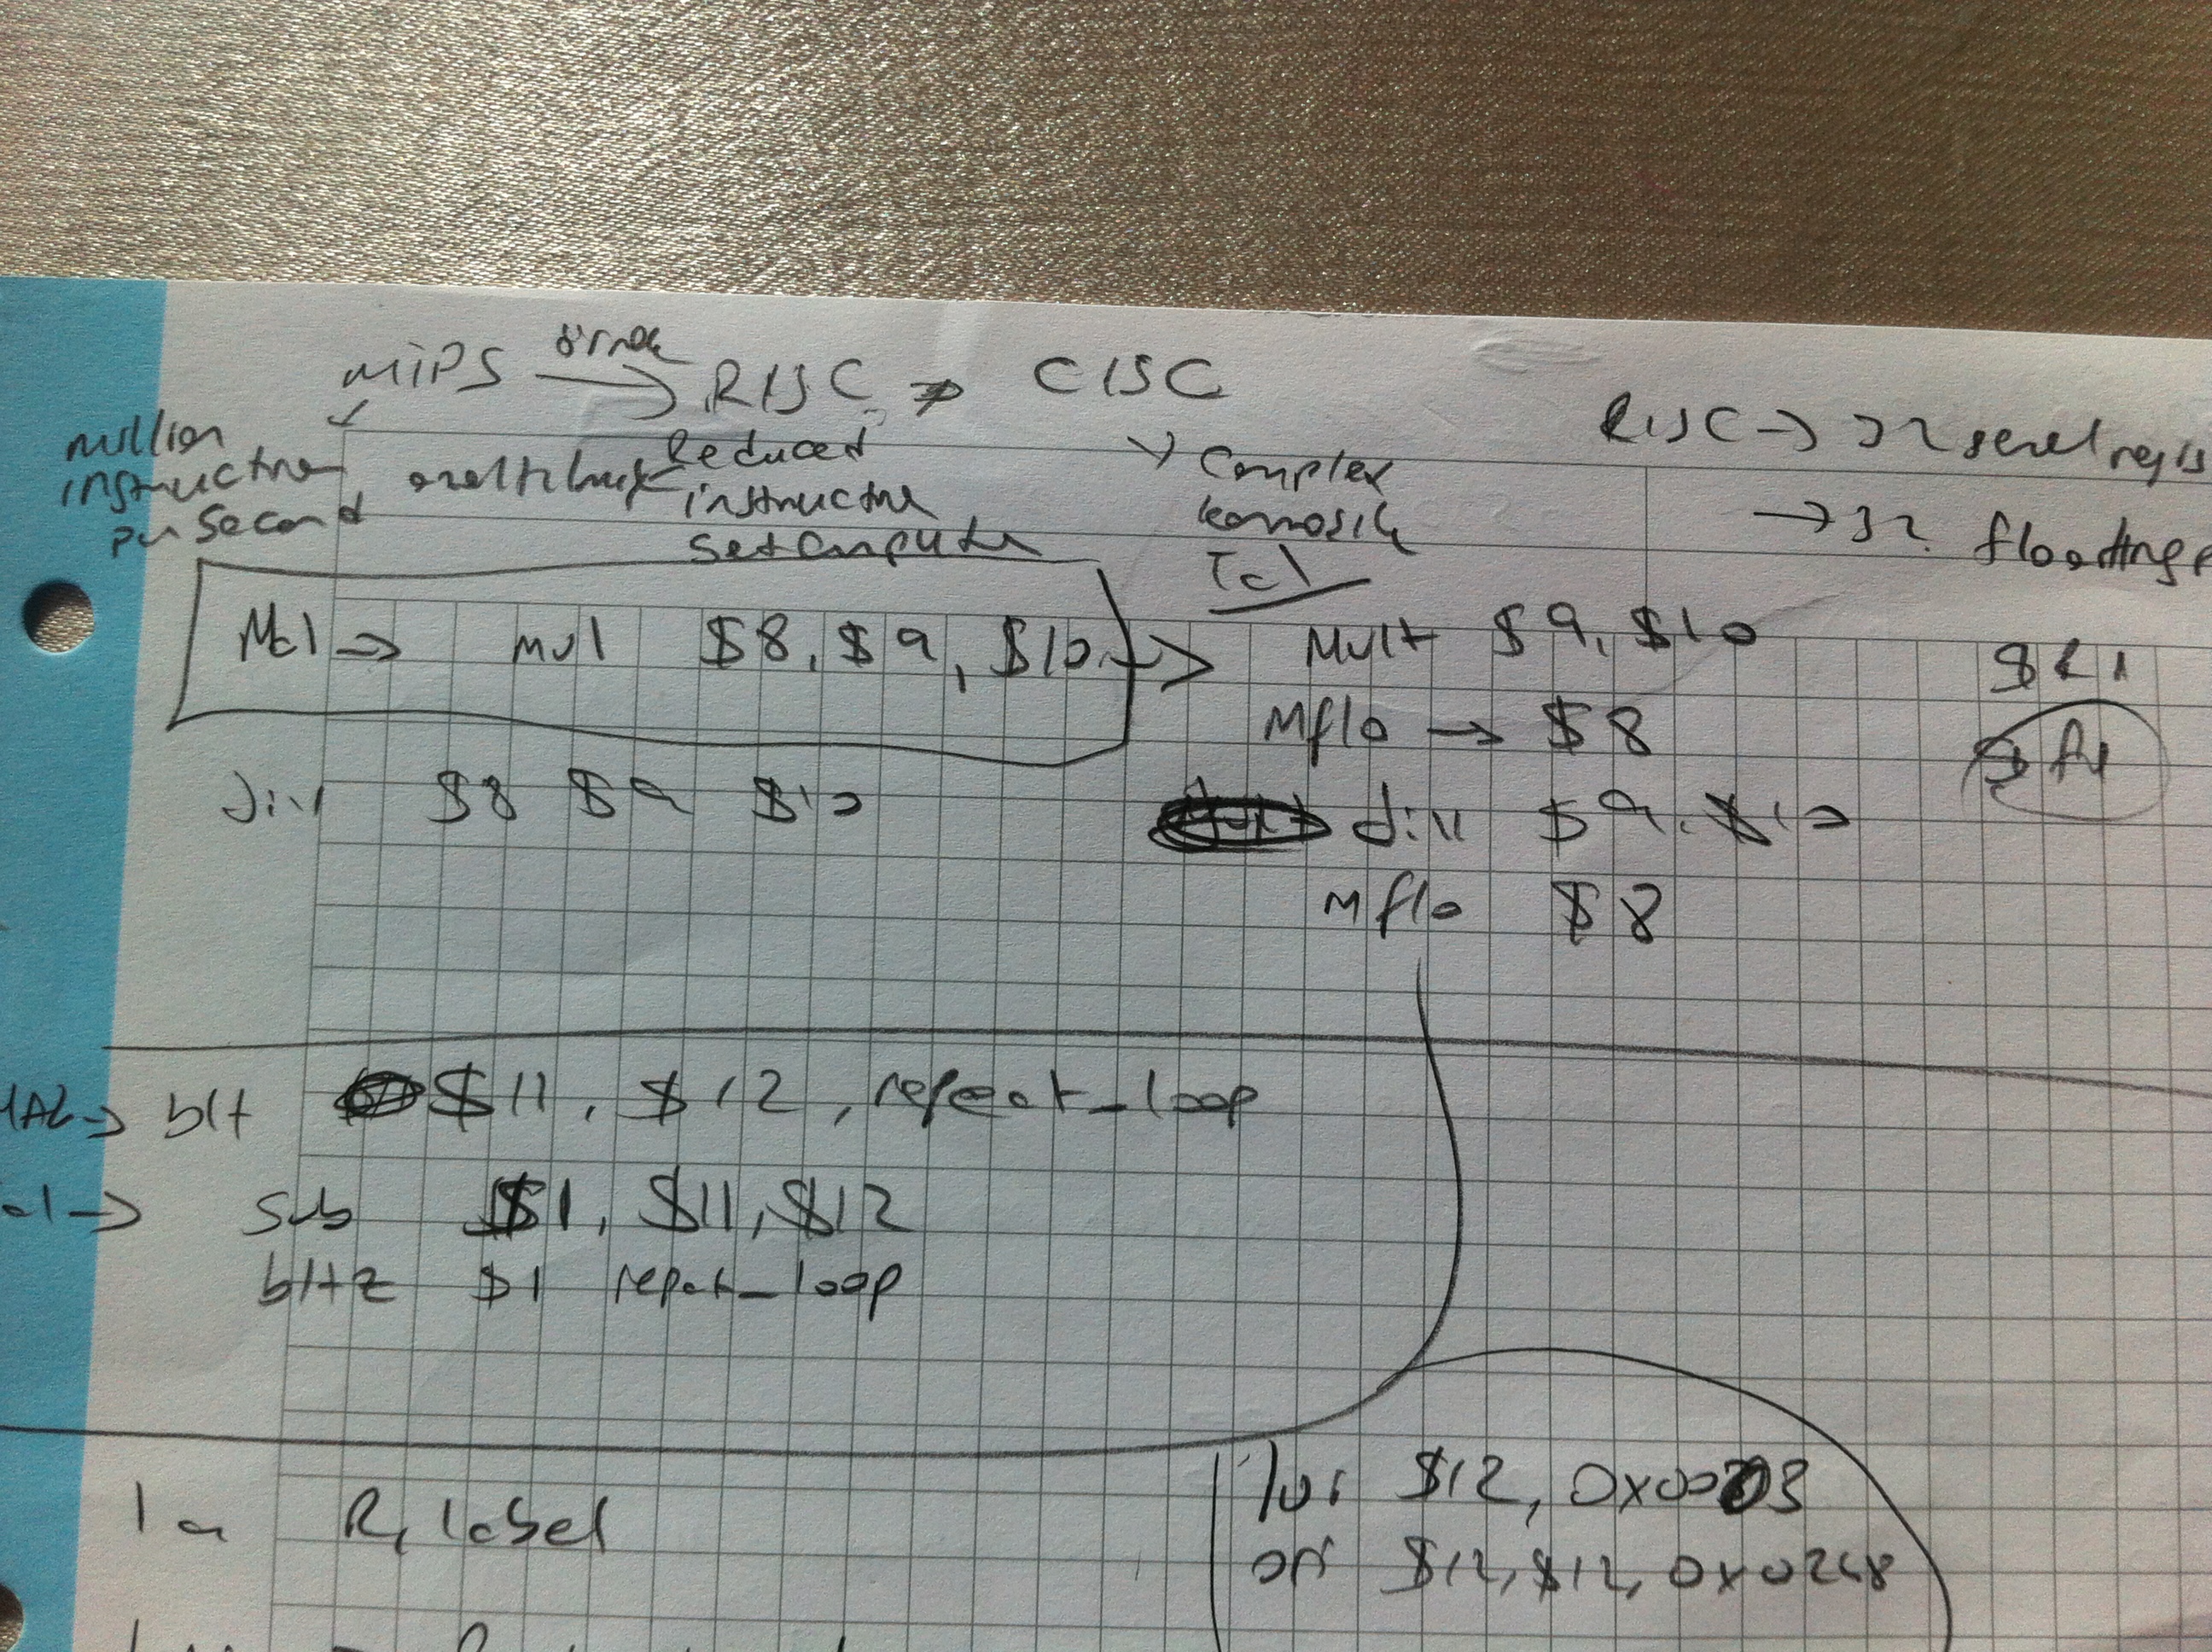 MIPS örnek → RISC ≠ CISC
million instruction per second
Reduced instructure set computer
Complex
komosik
RISC → 32 genel regis
→ 32 floating p
Mcl → mul $8, $9, $10 →
Tcl
Mult $9, $10
Mflo → $8
div $8 $9 $10
div $9, $10
Mflo $8
$f1
→ blt $11, $12, repeat_loop
→ sub $1, $11, $12
bltz $1 repat_loop
la R, label
lui $12, 0x0003
ori $12, $12, 0x0248